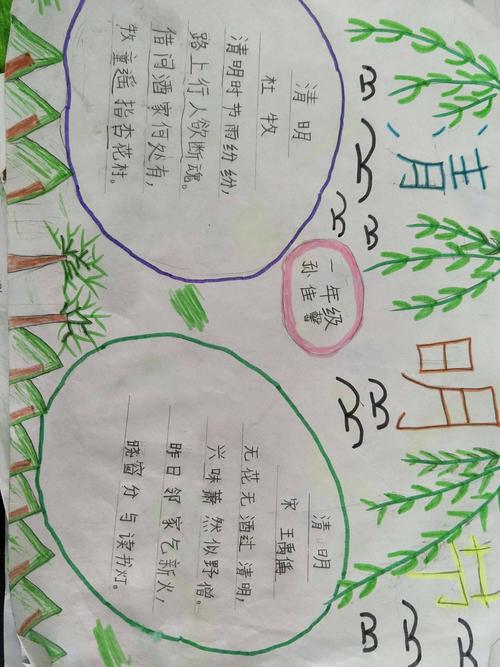 清明节
清明
杜牧
清明时节雨纷纷,
路上行人欲断魂。
借问酒家何处有,
牧童遥指杏花村。
一年级
孙佳馨
清明
宋 王禹偁
无花无酒过清明,
兴味萧然似野僧。
昨日邻家乞新火,
晓窗分与读书灯。